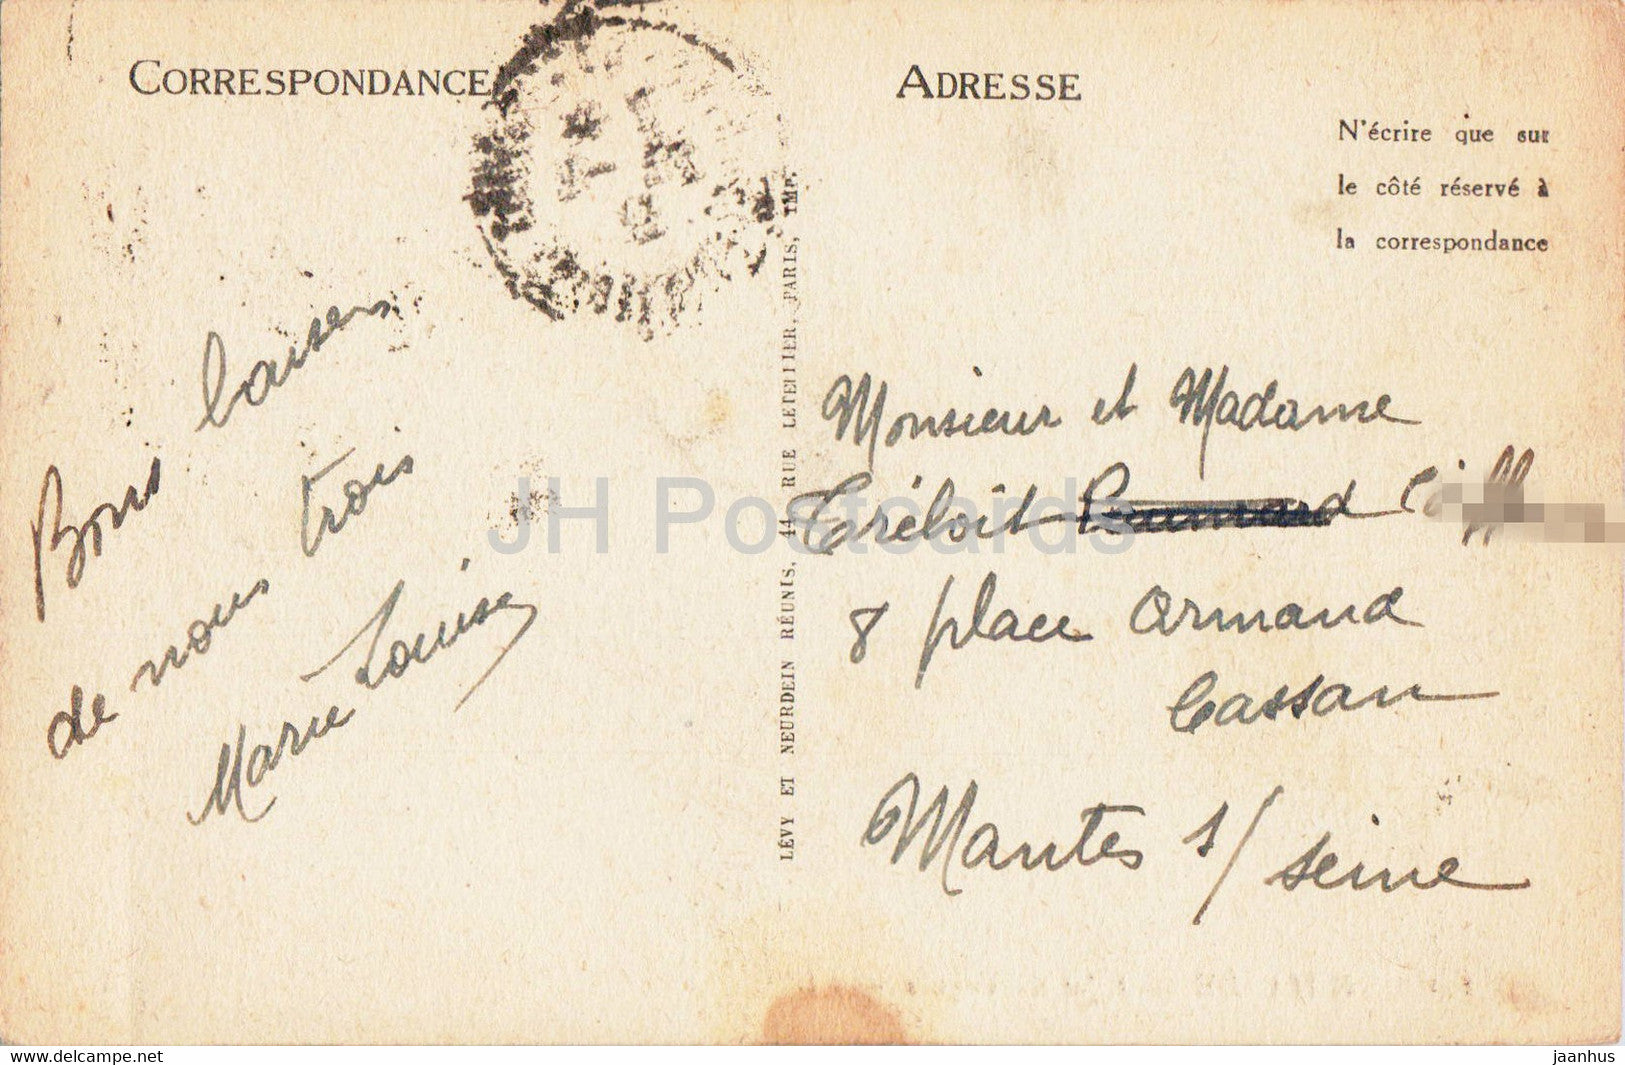 CORRESPONDANCE
ADRESSE
N'écrire que sur
le côté réservé à
la correspondance
Bons baisers
de nous trois
Marie Louise
LÉVY ET NEURDEIN RÉUNIS, 44 RUE LETELLIER, PARIS, IMP.
Monsieur et Madame
Tréloit
8 place Armand
Cassan
Mantes s/ seine
JH Postcards
www.delcampe.net
jaanhus